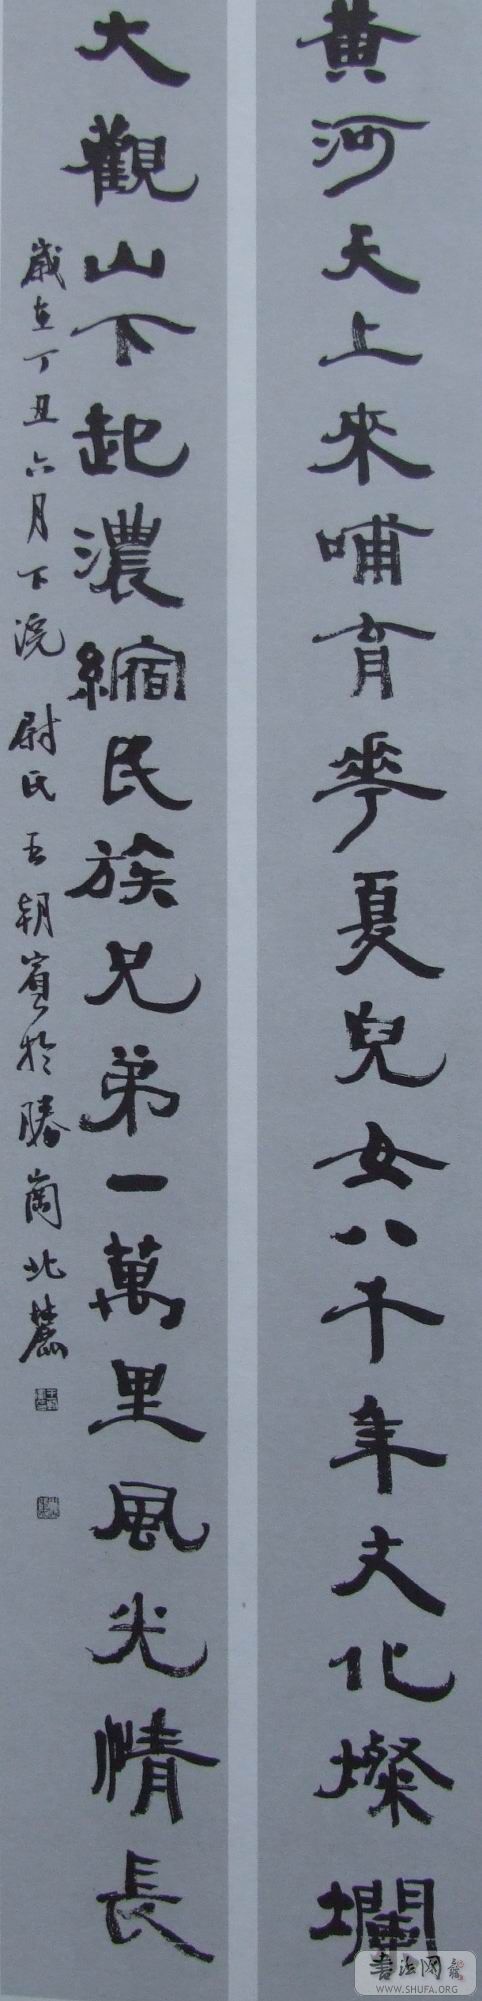 黃河天上來哺育華夏兒女八千年文化燦爛
大觀山下起濃縮民族兄弟一萬里風光情長
歲在丁丑六月下浣 尉氏王朝賓於勝北麓
书法网
WWW.SHUFA.ORG